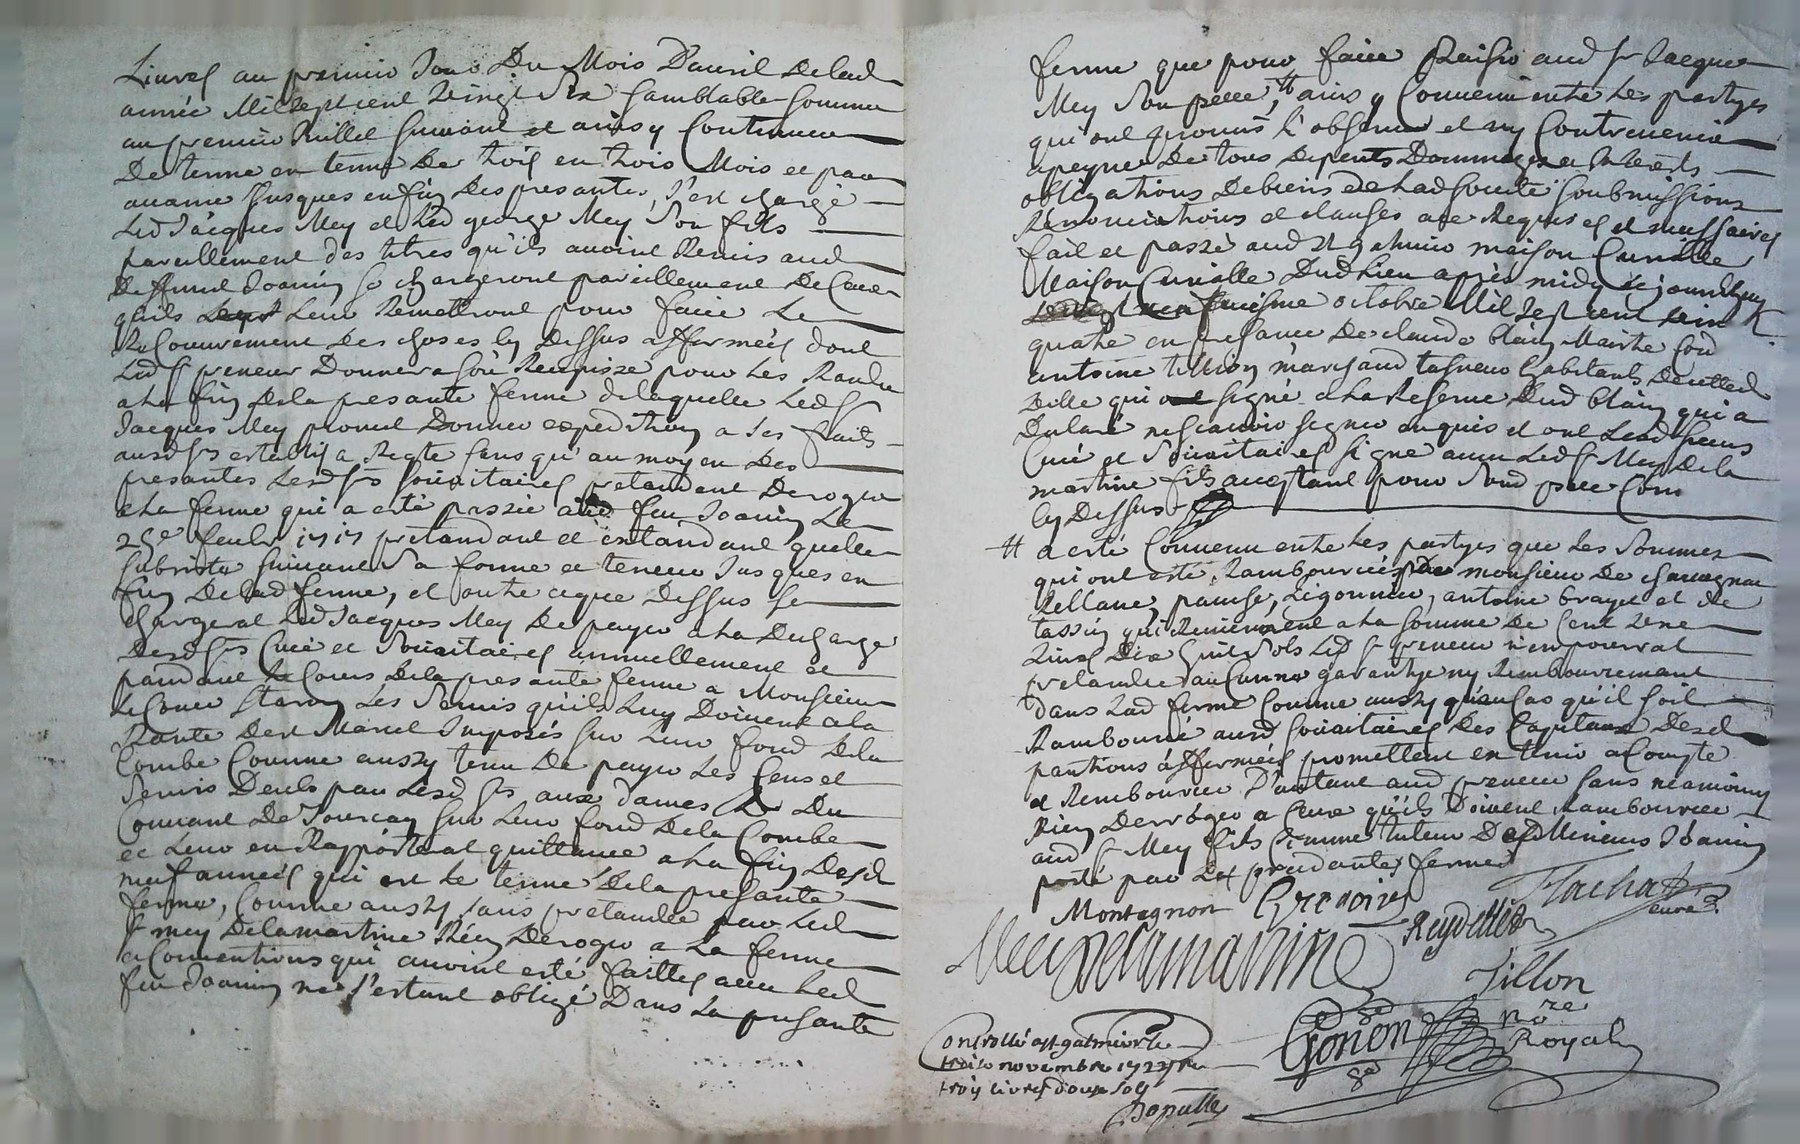 Livres au premier Jour Du Mois D'avril Delad
année Mil sept cent vingt six samblable somme
au premier Juillet suivant et ainsy Continuer
De terme en terme De trois en trois Mois et par
avance Jusques en fin Des presantes, s'est chargé
Led Jacques Mey et led george Mey son fils
pareillement des titres qu'ils avoint Remis aud
Deffunt Joanin se chargeront pareillement De Ceux
qu'ils Leur Remettront pour faire Le
Recouvrement Des choses cy Dessus affermées dont
Led Sr preneur Donnera son Recepissé pour Les Randre
a La fin Dela presante ferme delaquelle Led Sr
Jacques Mey promet Donner expedition a ses frais
ausd Srs sans qu'au moyen Des
presantes Lesd Srs societaires pretandent Deroger
a La ferme qui a esté passée aud feu Joanin Le
25e feubr 1717 pretandant et entandant quelle
subsiste suivant Sa forme et teneur Jusques en
fin Delad ferme, et outre ceque Dessus se
chargerat Led Jacques Mey De payer a La Descharge
Desd Srs Curé et Societaires annuellement et
pandant Le Cours Dela presante ferme a Monsieur
Le Les Servis qu'ils Luy Doivent a La
Rante De St Marcel Imposés sur Leur fond Dela
Combe Comme aussy tenu De payer Les Cens et
Servis Deubs par Lesd Srs aux dames Du
Couvant De Jourcay sur Leur fond Dela Combe
et Leur en Rapporterat quittance a La fin Desd
neuf années qui est Le terme Dela presante
ferme, Comme aussy sans pretandre par Led
Sr mey Delamartine Rien Deroger a La ferme
et Conventions qui avoint esté faittes avec Led
feu Joanin ne s'estant obligé Dans La presante
ferme que pour faire Plaisir aud Sr Jacques
Mey Son pere, # ainsy Convenu entre Les partyes
qui ont promis L'observer et ny Contrevenir
apeyne De tous Depents Dommages et Interests
obligations Debiens De Lad Societé soubmissions
Renonciations et clauses a ce Requises et nessaires
fait et passé aud St galmier maison Curialle
Maison Curialle Dud Lieu après midy ce jourdhuy
octobre Mil sept cent vingt
quatre en presance De claude blain Maitre Cord
antoine tillion marchand taneur habitants Decetted
ville qui ont signé a La Reserve Dud blain qui a
Dclaré nescavoir signer enquis et ont Lesd Sieurs
Curé et Societaires signé avec Led Sr Mey Dela
martine fils acceptant pour Sond pere Com
cy Dessus
# a esté Convenu entre Les partyes que Les Sommes
qui ont esté Rambourcées par monsieur De chavagnac
Rellane, pamse, Ligonnier, antoine brayet et De
tassin qui Reviennent a La somme De Cent
Livres Dix huit sols Led Sr preneur n'en pourrat
pretandre aucunne garantye ny Rembourcement
Dans Lad ferme Comme aussy qu'aucas qu'il soit
Rambourcé ausd societaires Des Capitaux Desd
pantions affermées promettent en tenir aCompte
et Rembourcer D'autant aud preneur sans neamoins
Rien Derroger a Ceux qu'ils Doivent Rambourcer
aud Sr Mey fils Comme tuteur Desd Mineurs Joanin
porté par Les precedantes fermes
Montagnon Gregoire Flachat
curé
Mey Delamartine Reydellet
Tillon
Gonon No.re
Royal
Controllé a St galmier le
trois novembre 1724 Re
trois livres douze sols
Dopulle